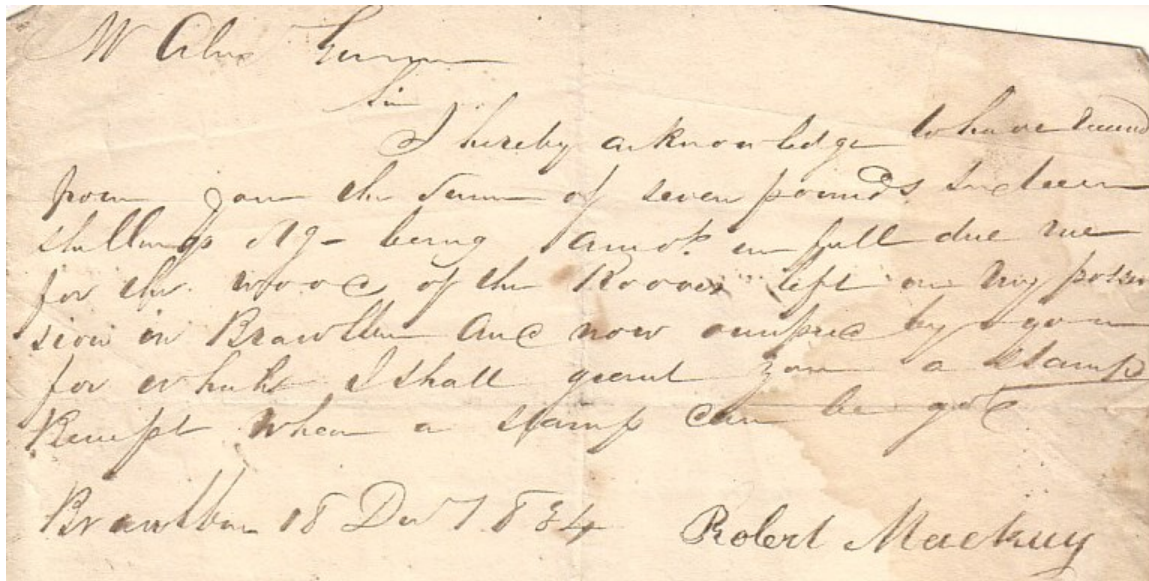 Mr Alexr Gunn
Sir
I hereby acknowledge to have received
from you the sum of seven pounds sixteen
shillings Stg - being amot. in full due me
for the wood of the Rooves left in my posses
sion in Brawlbin and now occupied by you
for which I shall grant you a Stamp
Receipt when a stamp can be got
Brawlbin 18 Decr 1834 Robert Mackay